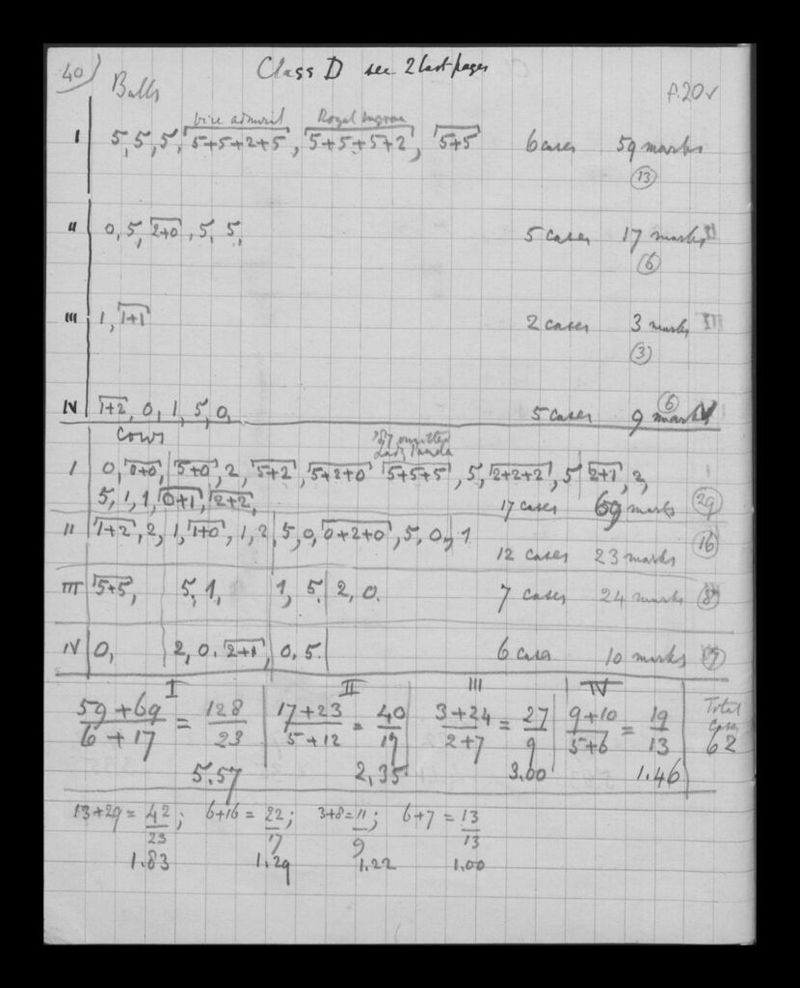 40) Class D see 2 last pages
Bulls f.20v
vice admiral Royal
I 5, 5, 5, 5+5+2+5, 5+5+5+2, 5+5 6 cases 59 marks
(13)
II 0, 5, 2+0, 5, 5, 5 cases 17 marks
(6)
III 1, 1+1 2 cases 3 marks
(3)
IV 1+2, 0, 1, 5, 0, 5 cases 9 marks (6)
Cows omitted
Lady Panda
I 0, 0+0, 5+0, 2, 5+2, 5+2+0 5+5+5, 5, 2+2+2, 5 2+1, 2,
5, 1, 1, 0+1, 2+2, 17 cases 69 marks (29)
II 1+2, 2, 1, 1+0, 1, 2, 5, 0, 0+2+0, 5, 0, 1
12 cases 23 marks (16)
III 5+5, 5, 1, 1, 5, 2, 0. 7 cases 24 marks (8)
IV 0, 2, 0. 2+1, 0, 5. 6 cases 10 marks (7)
I II III IV Total
59+69 = 128 17+23 = 40 3+24 = 27 9+10 = 19 cases
6+17 23 5+12 17 2+7 9 5+6 13 62
5.57 2,35 3.00 1.46
13+29 = 42; 6+16 = 22; 3+8 = 11; 6+7 = 13
23 17 9 13
1.83 1.29 1.22 1.00